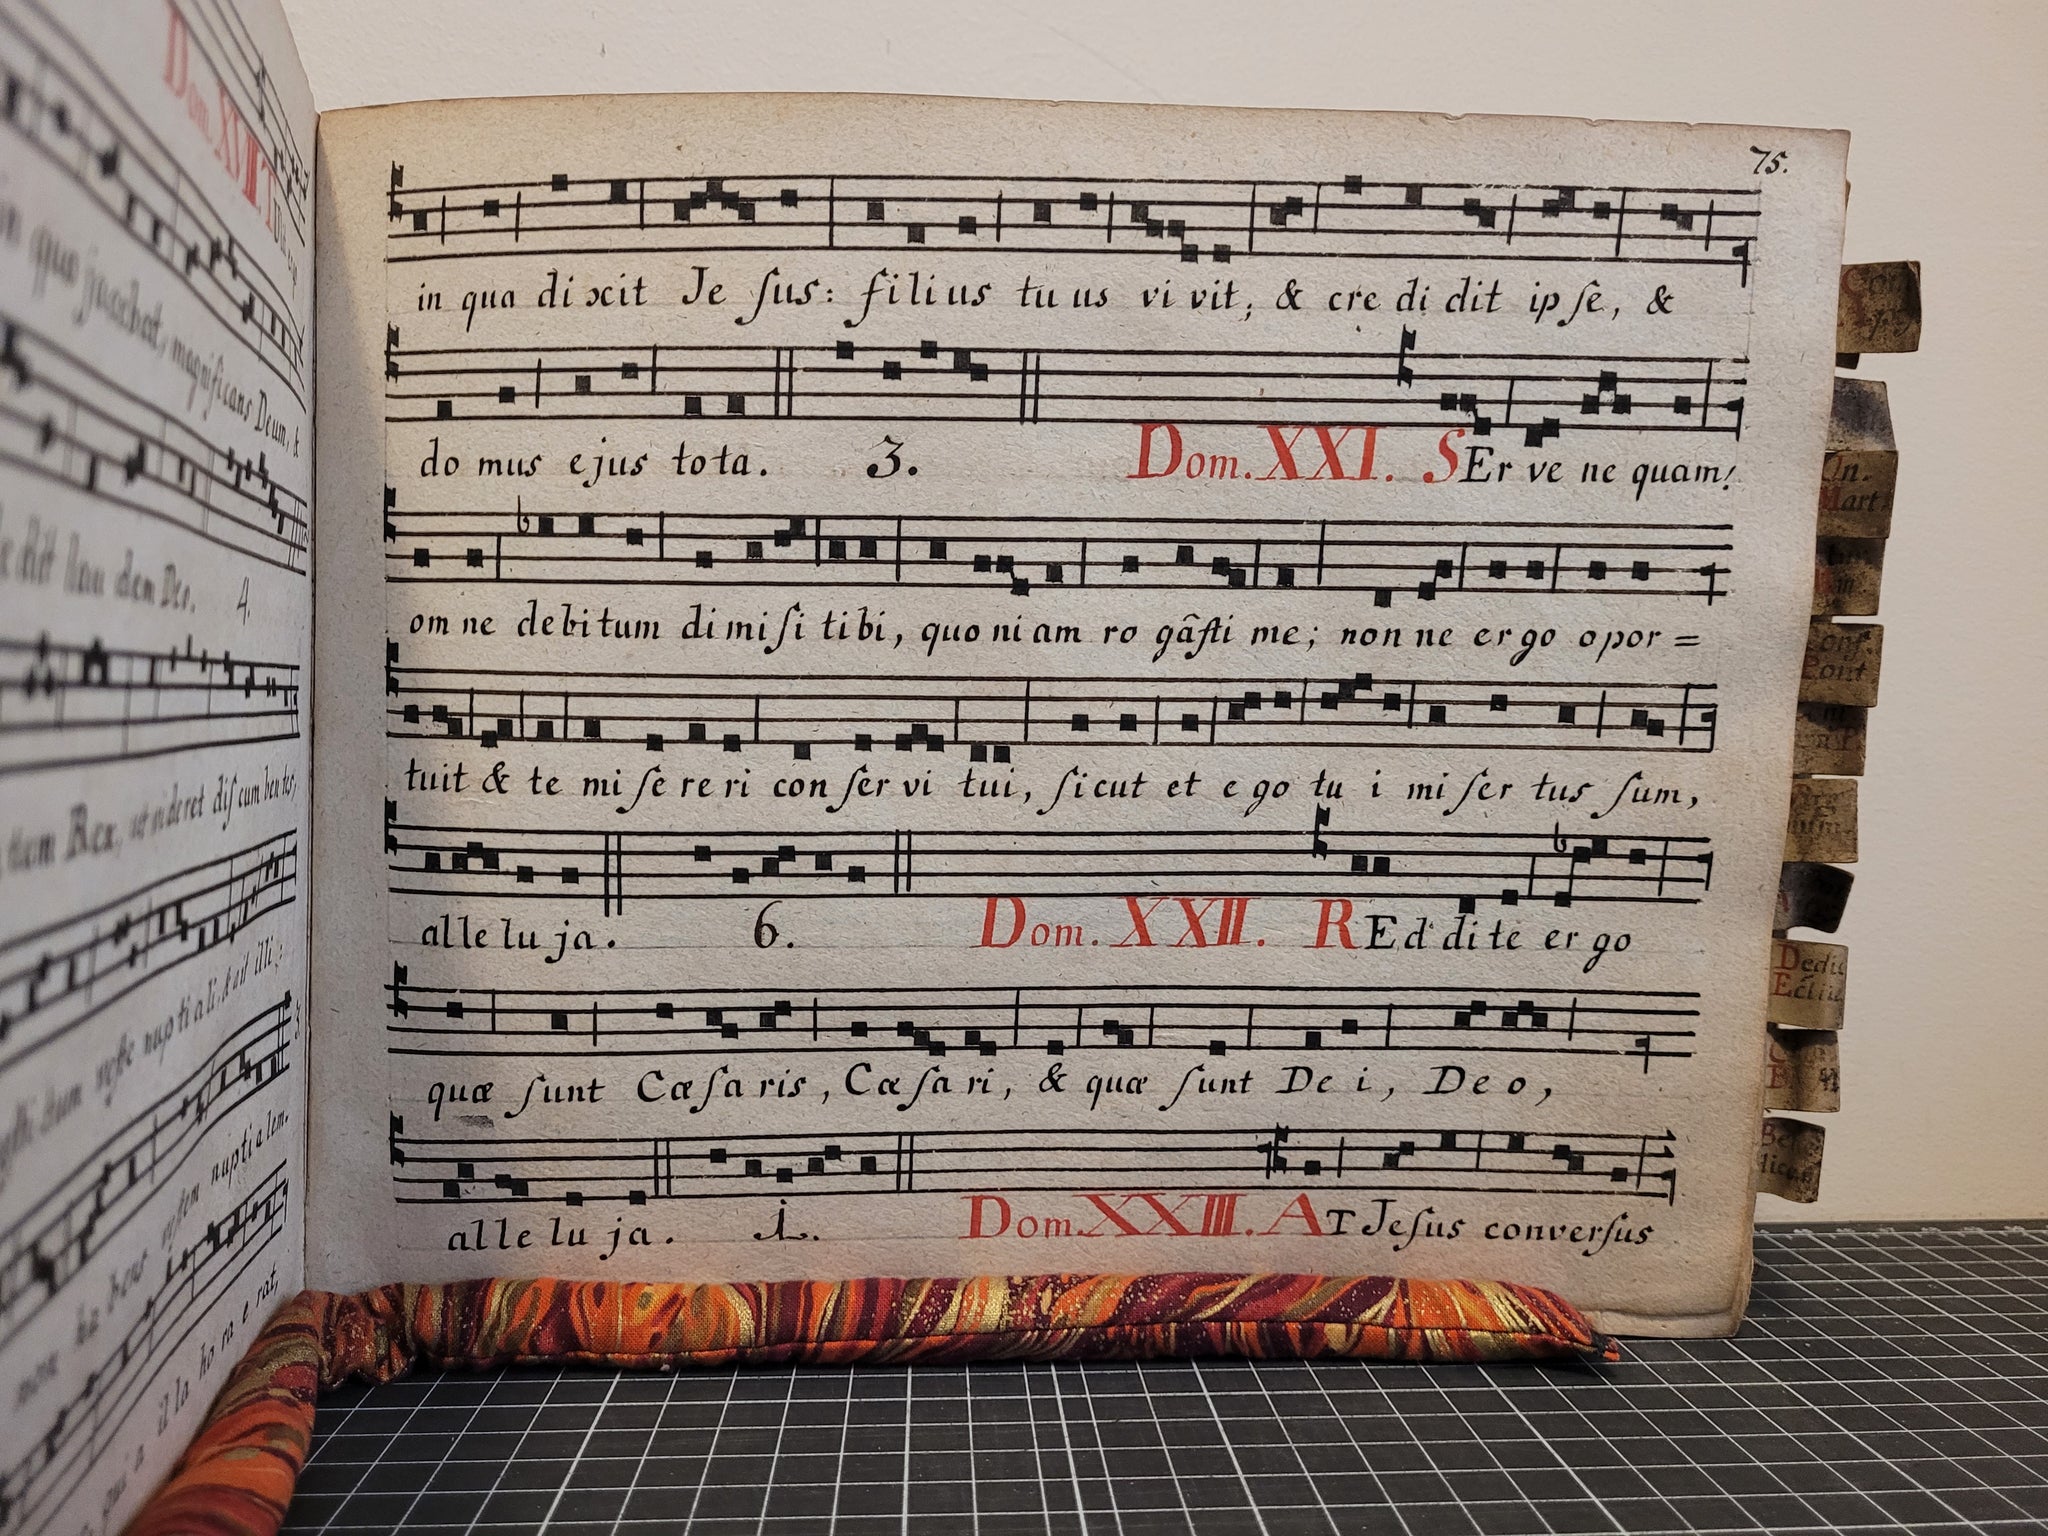 Dom. XVIII. T
in quo jacebat, magnificans Deum, &
dit lau dem Deo. 4.
Rex, ut videret diſ cum ben tes,
veſte nup ti a li, & ait illi:
ha bens veſtem nupti a lem.
il la ho ra e rat,
75.
in qua di xit Je ſus: fili us tu us vi vit; & cre di dit ip ſe, &
do mus ejus tota. 3. Dom. XXI. SEr ve ne quam!
om ne debitum di mi ſi tibi, quo ni am ro gâſti me; non ne er go opor=
tuit & te mi ſe re ri con ſer vi tui, ſicut et e go tu i mi ſer tus ſum,
alle lu ja. 6. Dom. XXII. REd di te er go
quæ ſunt Cæ ſa ris, Cæ ſa ri, & quæ ſunt De i, De o,
alle lu ja. 1. Dom. XXIII. AT Jeſus converſus
In.
Mart
Conf.
Pont
Dedic
Eccl